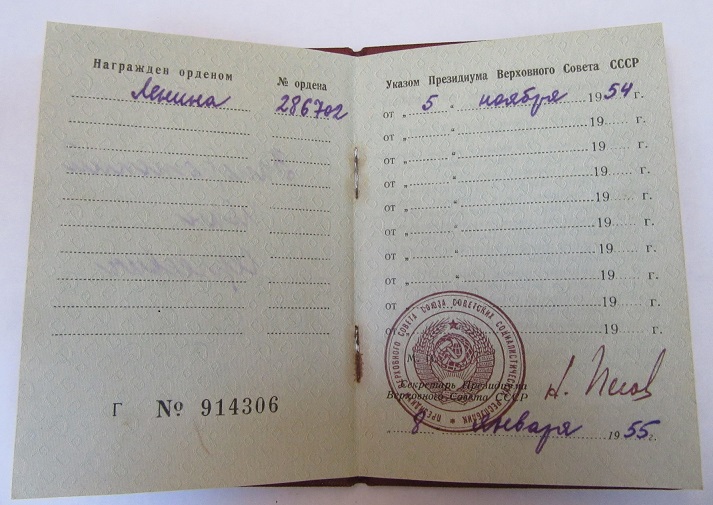 Награжден орденом № ордена
Ленина 286702
Г № 914306
Указом Президиума Верховного Совета СССР
от „ 5 “ ноября 1954 г.
от „ “ 19 г.
от „ “ 19 г.
от „ “ 19 г.
от „ “ 19 г.
от „ “ 19 г.
от „ “ 19 г.
от „ “ 19 г.
от 19 г.
М.
Секретарь Президиума
Верховного Совета СССР
Н. Пегов
8 января 1955 г.
ПРЕЗИДИУМ ВЕРХОВНОГО СОВЕТА СОЮЗА СОВЕТСКИХ СОЦИАЛИСТИЧЕСКИХ РЕСПУБЛИК